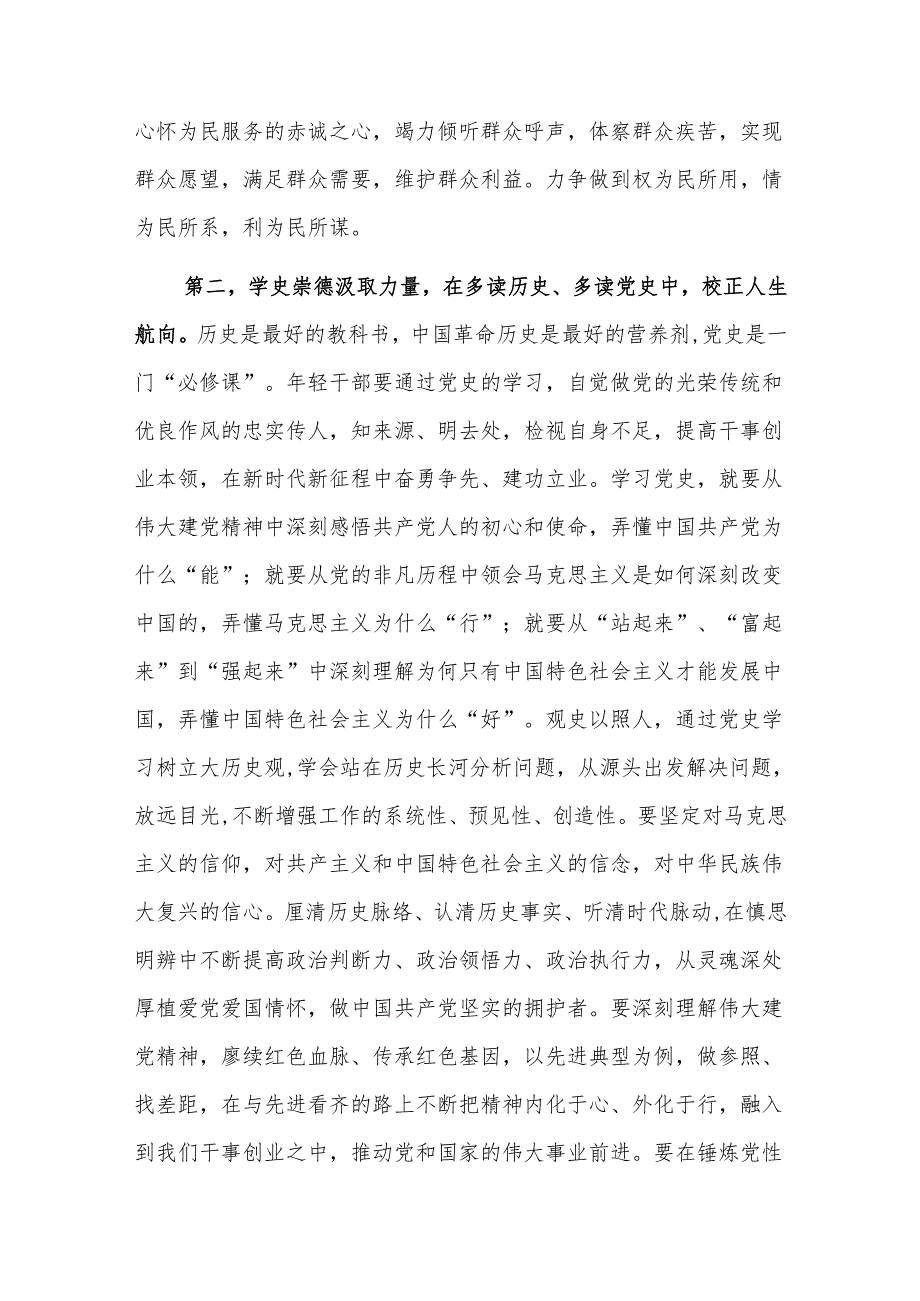 心怀为民服务的赤诚之心，竭力倾听群众呼声，体察群众疾苦，实现
群众愿望，满足群众需要，维护群众利益。力争做到权为民所用，情
为民所系，利为民所谋。
第二，学史崇德汲取力量，在多读历史、多读党史中，校正人生
航向。历史是最好的教科书，中国革命历史是最好的营养剂,党史是一
门“必修课”。年轻干部要通过党史的学习，自觉做党的光荣传统和
优良作风的忠实传人，知来源、明去处，检视自身不足，提高干事创
业本领，在新时代新征程中奋勇争先、建功立业。学习党史，就要从
伟大建党精神中深刻感悟共产党人的初心和使命，弄懂中国共产党为
什么“能”；就要从党的非凡历程中领会马克思主义是如何深刻改变
中国的，弄懂马克思主义为什么“行”；就要从“站起来”、“富起
来”到“强起来”中深刻理解为何只有中国特色社会主义才能发展中
国，弄懂中国特色社会主义为什么“好”。观史以照人，通过党史学
习树立大历史观,学会站在历史长河分析问题，从源头出发解决问题，
放远目光,不断增强工作的系统性、预见性、创造性。要坚定对马克思
主义的信仰，对共产主义和中国特色社会主义的信念，对中华民族伟
大复兴的信心。厘清历史脉络、认清历史事实、听清时代脉动,在慎思
明辨中不断提高政治判断力、政治领悟力、政治执行力，从灵魂深处
厚植爱党爱国情怀，做中国共产党坚实的拥护者。要深刻理解伟大建
党精神，廖续红色血脉、传承红色基因，以先进典型为例，做参照、
找差距，在与先进看齐的路上不断把精神内化于心、外化于行，融入
到我们干事创业之中，推动党和国家的伟大事业前进。要在锤炼党性